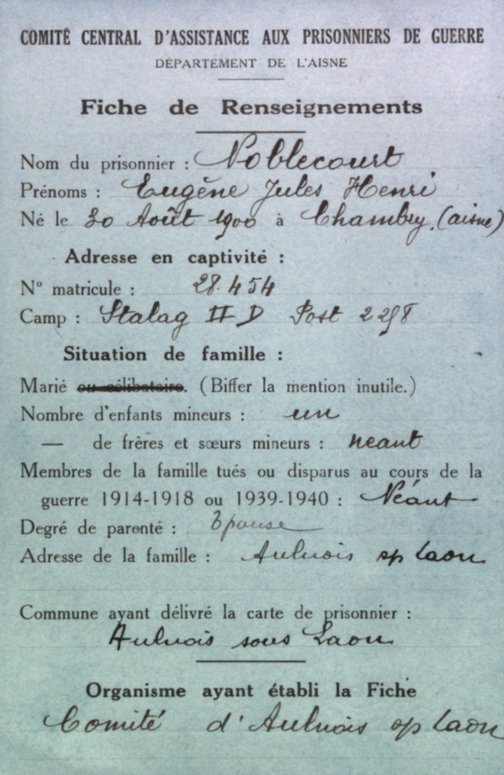 COMITÉ CENTRAL D'ASSISTANCE AUX PRISONNIERS DE GUERRE
DÉPARTEMENT DE L'AISNE
Fiche de Renseignements
Nom du prisonnier : Noblecourt
Prénoms : Eugène Jules Henri
Né le 30 Août 1900 à Chambry. (aisne)
Adresse en captivité :
N° matricule : 28.454
Camp : Stalag II D Post
Situation de famille :
Marié ou célibataire. (Biffer la mention inutile.)
Nombre d'enfants mineurs : un
— de frères et sœurs mineurs : neant
Membres de la famille tués ou disparus au cours de la
guerre 1914-1918 ou 1939-1940 : Néant
Degré de parenté : Epouse
Adresse de la famille : Aulnois sp Laon
Commune ayant délivré la carte de prisonnier :
Aulnois sous Laon
Organisme ayant établi la Fiche
Comité d'Aulnois sp Laon